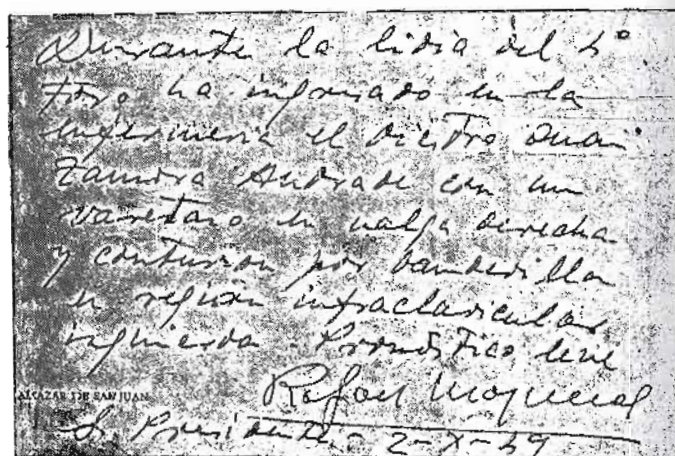 Durante la lidia del 4º
toro ha ingresado en la
enfermeria el diestro Juan
Zamora Andrade con un
varetazo en nalga derecha
y contusion por banderilla
en region infraclavicular
izquierda - Pronóstico leve
ALCAZAR DE SAN JUAN
Rafael
Sr. Presidente. - 2-X-49